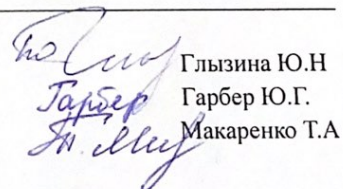 Глызина Ю.Н
Гарбер Гарбер Ю.Г.
Макаренко Т.А